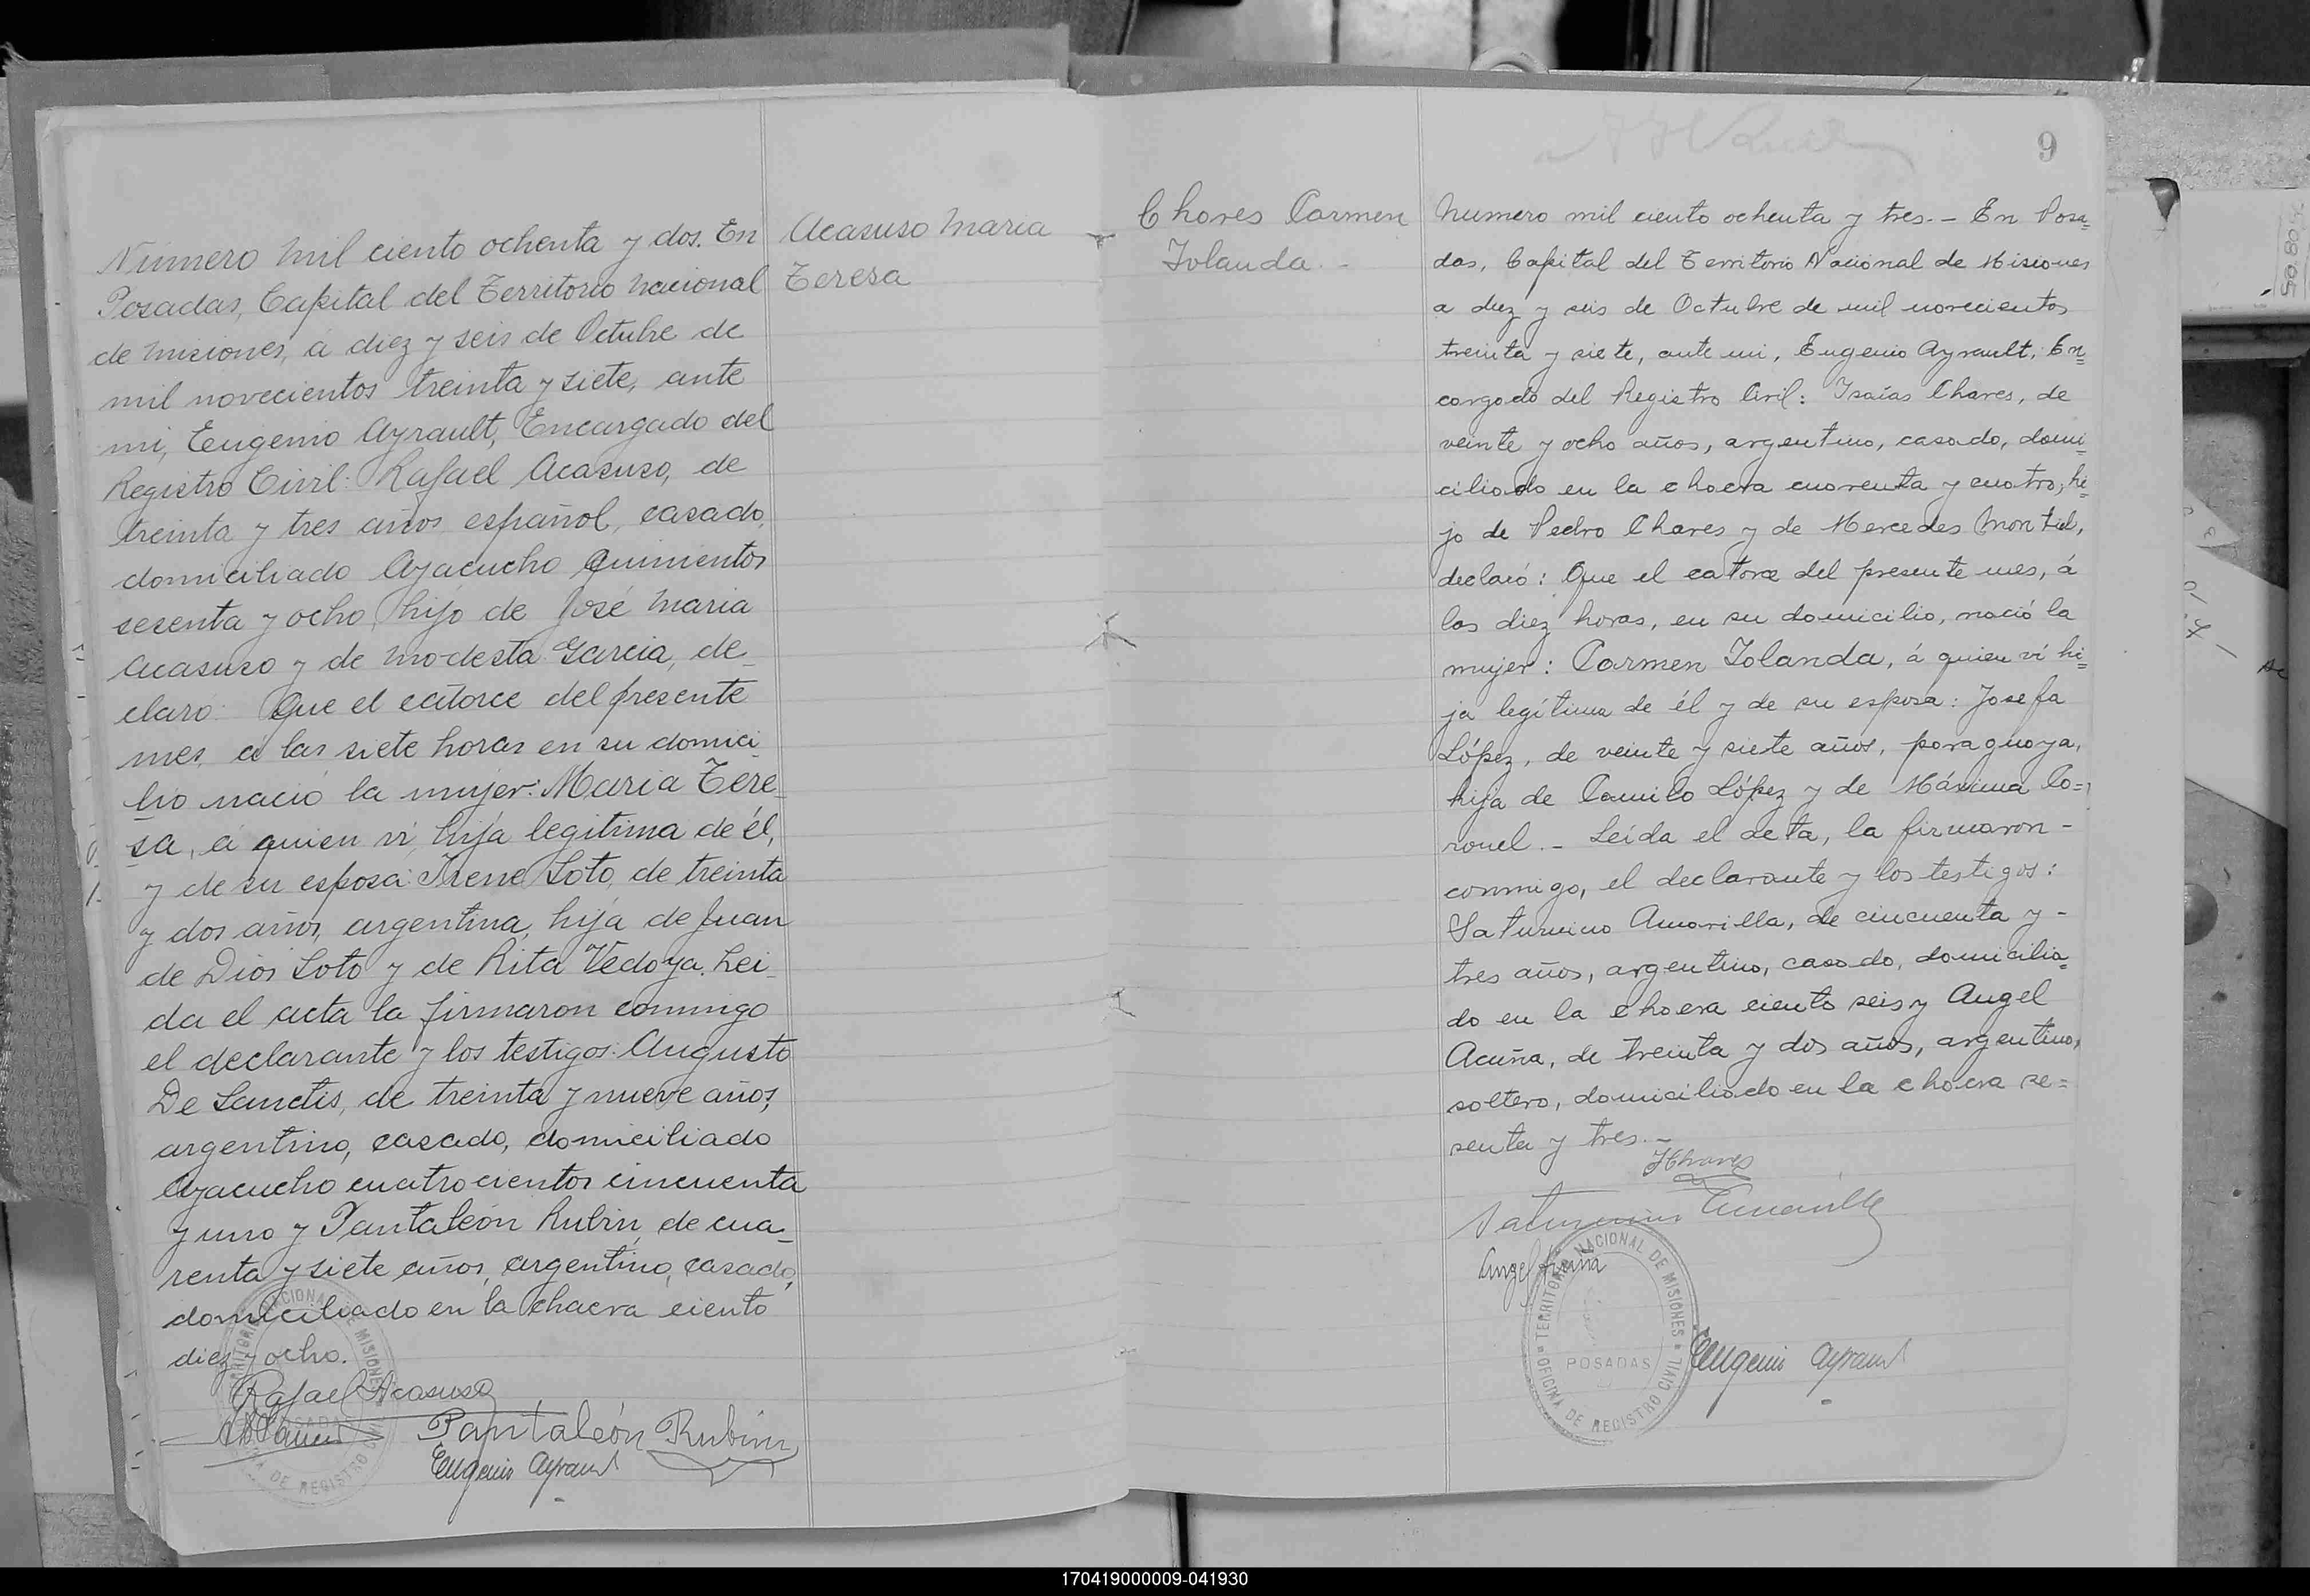 Número mil ciento ochenta y dos. En
Posadas, Capital del Territorio Nacional
de Misiones, á diez y seis de Octubre de
mil novecientos treinta y siete, ante
mi, Eugenio Ayrault, Encargado del
Registro Civil: Rafael Acasuso, de
treinta y tres años, español, casado,
domiciliado Ayacucho quinientos
sesenta y ocho, hijo de José Maria
Acasuso y de Modesta Garcia, de_
claró: Que el catorce del presente
mes, á las siete horas en su domici_
lio nació la mujer: Maria Tere_
sa, á quien ví, hija legitima de él,
y de su esposa: Irene Soto, de treinta
y dos años, argentina, hija de Juan
de Dios Soto y de Rita Vedoya. Lei_
da el acta la firmaron conmigo
el declarante y los testigos: Augusto
De Sanctis, de treinta y nueve años,
argentino, casado, domiciliado
Ayacucho cuatrocientos cincuenta
y uno y Pantaleón Rubin, de cua_
renta y siete años, argentino, casado,
domiciliado en la chacra ciento
diez y ocho.
Rafael Acasuso
Pantaleón Rubin
Eugenio Ayrault
Acasuso Maria
Teresa
Chares Carmen
Iolanda. -
9
Numero mil ciento ochenta y tres. - En Posa=
das, Capital del Territorio Nacional de Misiones
a diez y seis de Octubre de mil novecientos
treinta y siete, ante mi, Eugenio Ayrault, En=
cargado del Registro Civil: Isaías Chares, de
veinte y ocho años, argentino, casado, domi=
ciliado en la chacra cuarenta y cuatro, hi=
jo de Pedro Chares y de Mercedes Montiel,
declaró: Que el catorce del presente mes, á
las diez horas, en su domicilio, nació la
mujer: Carmen Iolanda, á quien ví hi=
ja legítima de él y de su esposa: Josefa
López, de veinte y siete años, paraguaya,
hija de Camilo López y de Máxima Co=
ronel. - Leída el acta, la firmaron -
conmigo, el declarante y los testigos:
Saturnino Amarilla, de cincuenta y -
tres años, argentino, casado, domicilia=
do en la chacra ciento seis y Angel
Acuña, de treinta y dos años, argentino,
soltero, domiciliado en la chacra se=
senta y tres. -
IChares
Saturnino Amarilla
Angel Acuña
TERRITORIO NACIONAL DE MISIONES
POSADAS
OFICINA DE REGISTRO CIVIL
Eugenio Ayrault
170419000009-041930